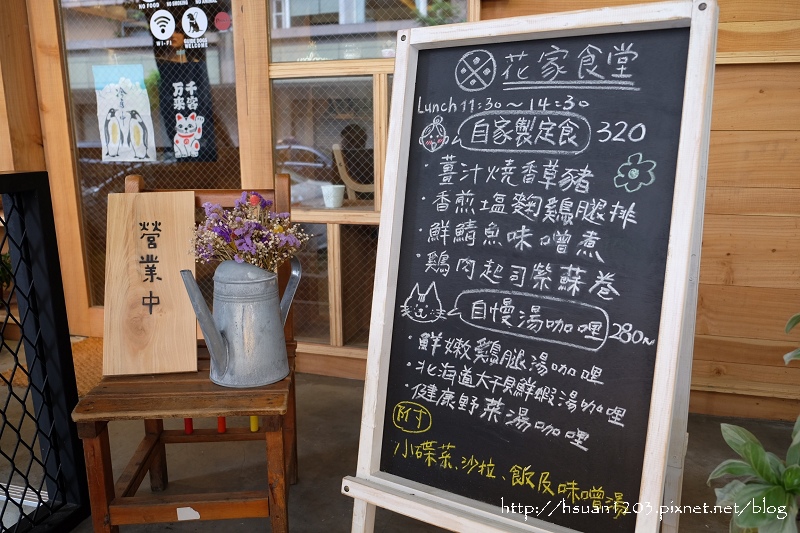 NO FOOD NO SMOKING NO ANIMAL
WI-FI
GUIDE DOGS WELCOME
千客
万来
營業中
花家食堂
Lunch 11:30～14:30
自家製定食 320
・薑汁燒香草豬
・香煎塩麴鷄腿排
・鮮鯖魚味噌煮
・鷄肉起司紫蘇卷
自慢湯咖哩 280~
・鮮嫩鷄腿湯咖哩
・北海道大干貝鮮蝦湯咖哩
・健康野菜湯咖哩
附
小碟菜、沙拉、飯及味噌湯
http://hsuan1203.pixnet.net/blog